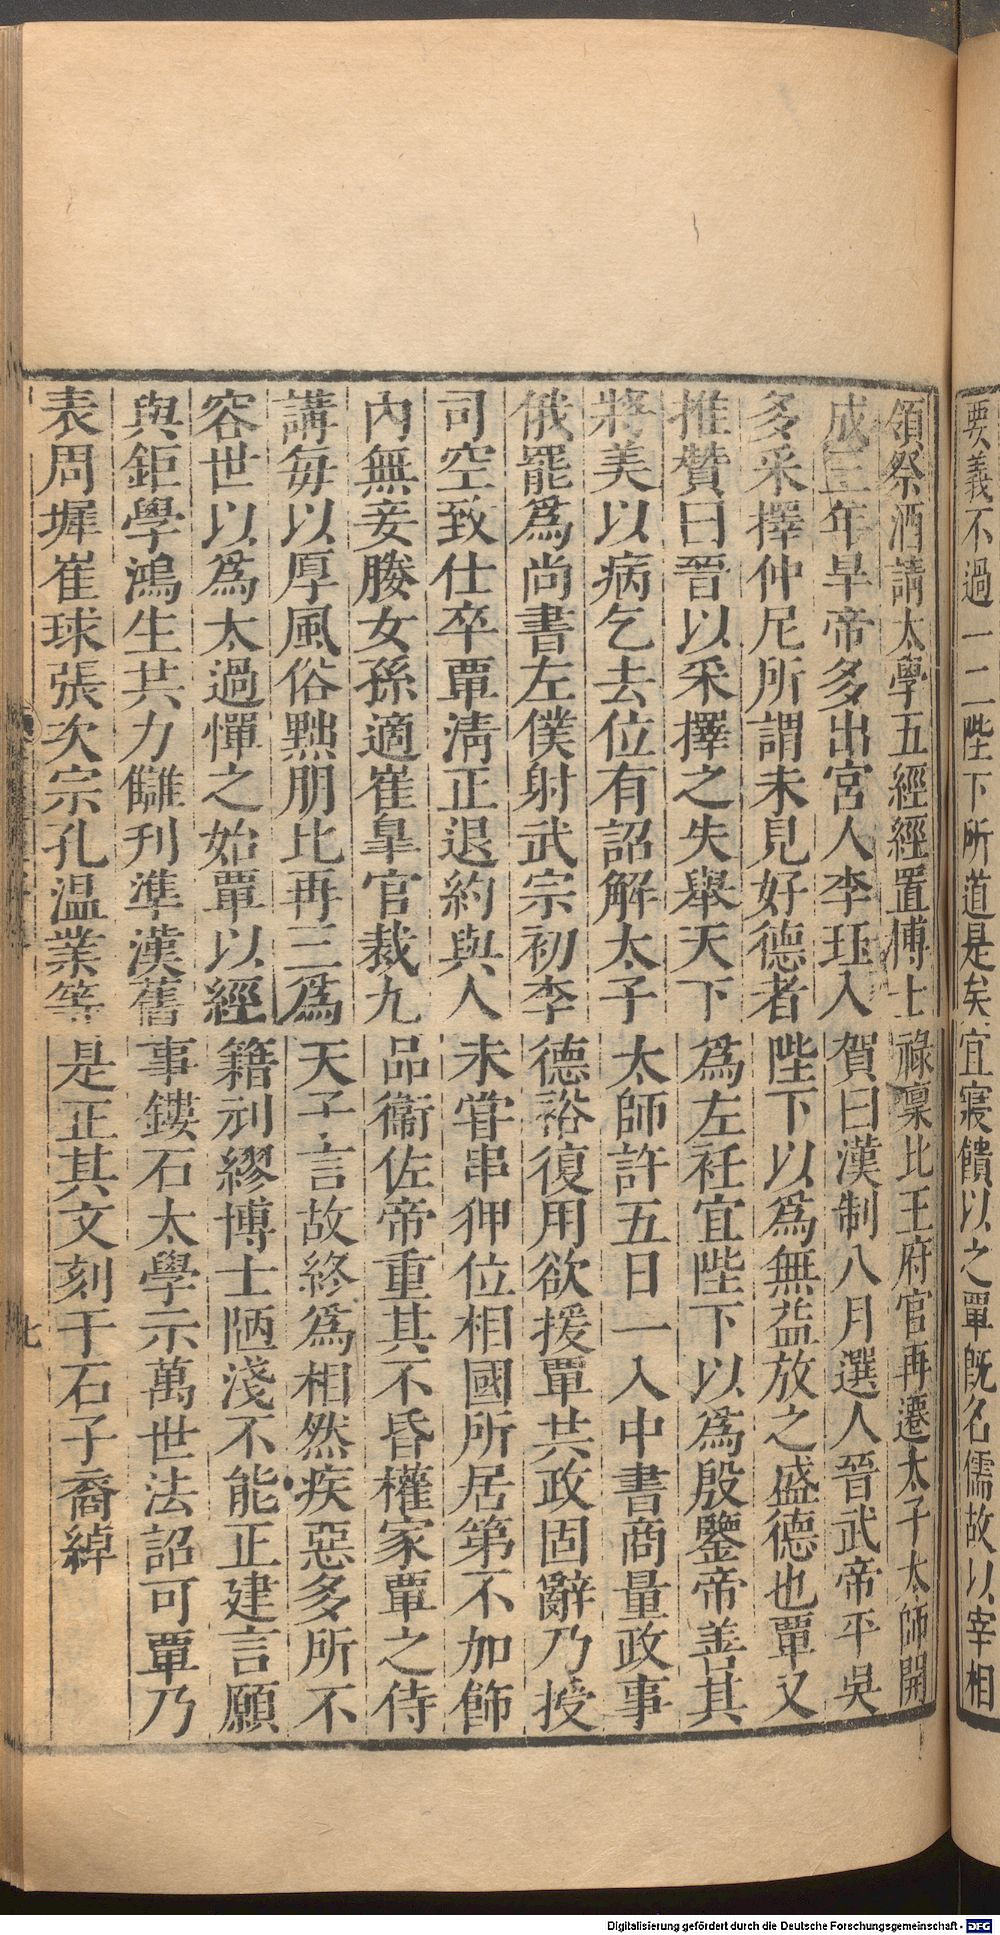 要義不過一二陛下所道是矣宜寢饋以之覃既名儒故以宰相
領祭酒請太學五經經置博士祿稟比王府官再遷太子太師開
成三年旱帝多出宮人李珏入賀曰漢制八月選人晉武帝平吳
多采擇仲尼所謂未見好德者陛下以爲無益放之盛德也覃又
推贊曰晉以采擇之失舉天下爲左衽宜陛下以爲殷鑒帝善其
將美以病乞去位有詔解太子太師許五日一入中書商量政事
俄罷爲尚書左僕射武宗初李德裕復用欲援覃共政固辭乃授
司空致仕卒覃淸正退約與人未甞串狎位相國所居第不加飾
內無妾媵女孫適崔皐官裁九品衞佐帝重其不昏權家覃之侍
講每以厚風俗黜朋比再三爲天子言故終爲相然疾惡多所不
容世以爲太過憚之始覃以經籍刓繆博士陋淺不能正建言願
與鉅學鴻生共力讎刊準漢舊事鏤石太學示萬世法詔可覃乃
表周墀崔球張次宗孔温業等是正其文刻于石子裔綽
七
Digitalisierung gefördert durch die Deutsche Forschungsgemeinschaft - DFG